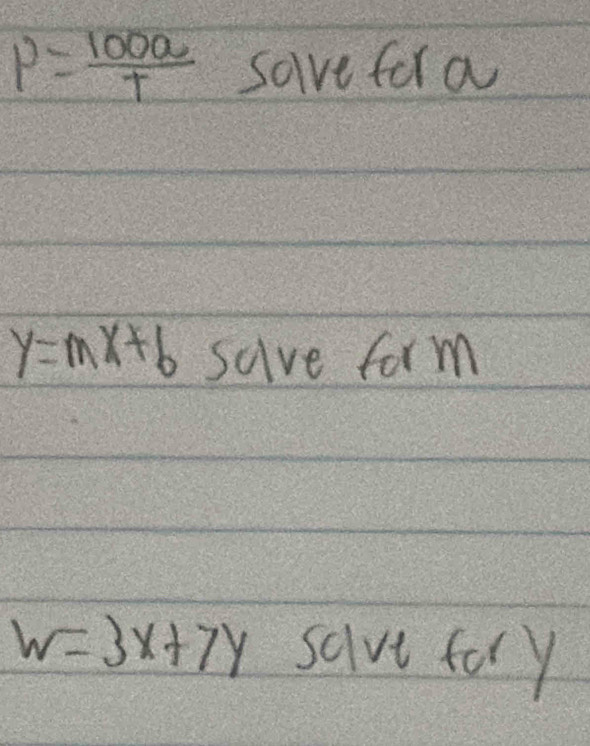 P = 100a/T solve for a
y = mx + b solve for m
W = 3x + 7y solve for y